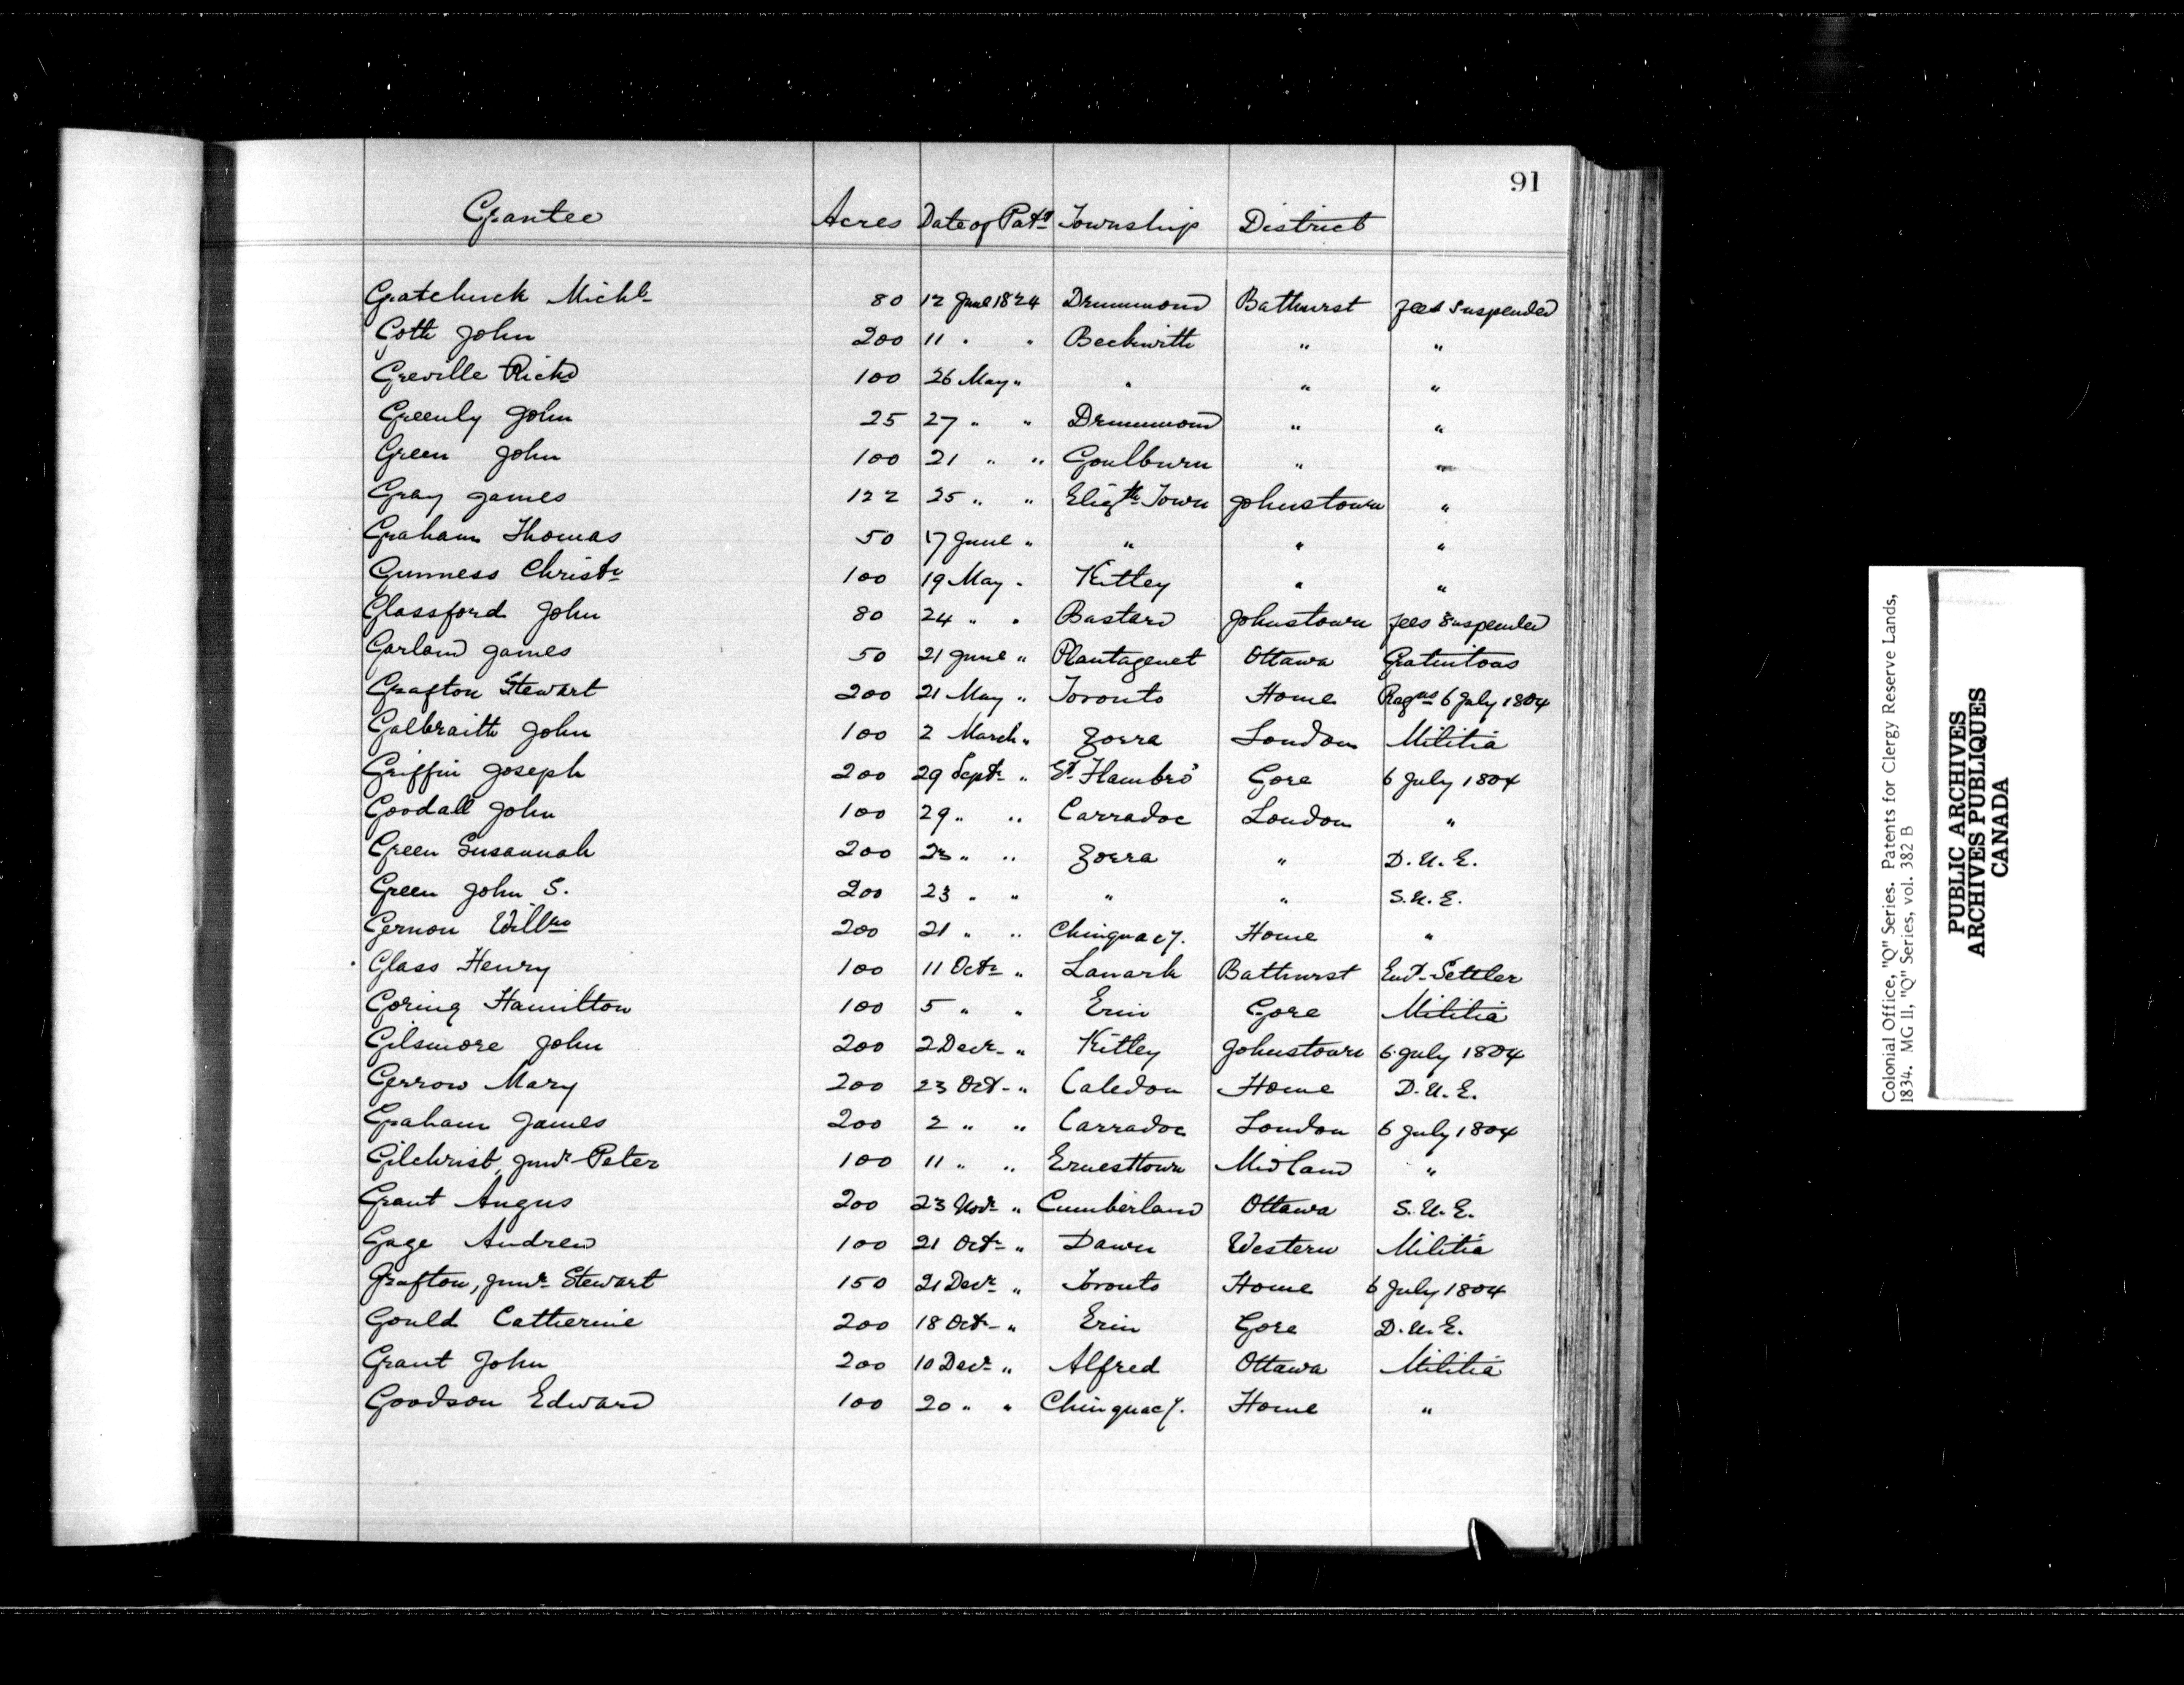 91
Grantee Acres Date of Patt Township District
Gratehuck Michl 80 12 June 1824 Drummond Bathurst fees suspended
Goth John 200 11 " " Beckwith " "
Greville Richd 100 26 May " " " "
Greenly John 25 27 " " Drummond " "
Green John 100 21 " " Goulburn " "
Gray James 122 25 " " Elizth Town Johnstown "
Graham Thomas 50 17 June " " " "
Gunness Christr 100 19 May " Kitley " "
Glassford John 80 24 " " Bastard Johnstown fees suspended
Garland James 50 21 June " Plantagenet Ottawa Gratuitous
Grafton Stewart 200 21 May " Toronto Home Regns 6 July 1804
Galbraith John 100 2 March " Zorra London Militia
Griffin Joseph 200 29 Septr " Et Flambro' Gore 6 July 1804
Goodall John 100 29 " " Carradoc London "
Green Susannah 200 23 " " Zorra " D.U.E.
Green John S. 200 23 " " " " S.U.E.
Gernon Willm 200 21 " " Chinguacy. Home "
Glass Henry 100 11 Octr " Lanark Bathurst Emt Settler
Goring Hamilton 100 5 " " Erin Gore Militia
Gilsmore John 200 2 Decr " Kitley Johnstown 6 July 1804
Gerrow Mary 200 23 Oct " Caledon Home D.U.E.
Graham James 200 2 " " Carradoc London 6 July 1804
Gilchrist, Junr Peter 100 11 " " Ernesttown Midland "
Grant Angus 200 23 Novr " Cumberland Ottawa S.U.E.
Gage Andrew 100 21 Octr " Dawn Western Militia
Grafton, Junr Stewart 150 21 Decr " Toronto Home 6 July 1804
Gould Catherine 200 18 Oct " Erin Gore D.U.E.
Grant John 200 10 Decr " Alfred Ottawa Militia
Goodson Edward 100 20 " " Chinguacy. Home "
Colonial Office, "Q" Series. Patents for Clergy Reserve Lands,
1834. MG 11, "Q" Series, vol. 382 B
PUBLIC ARCHIVES
ARCHIVES PUBLIQUES
CANADA